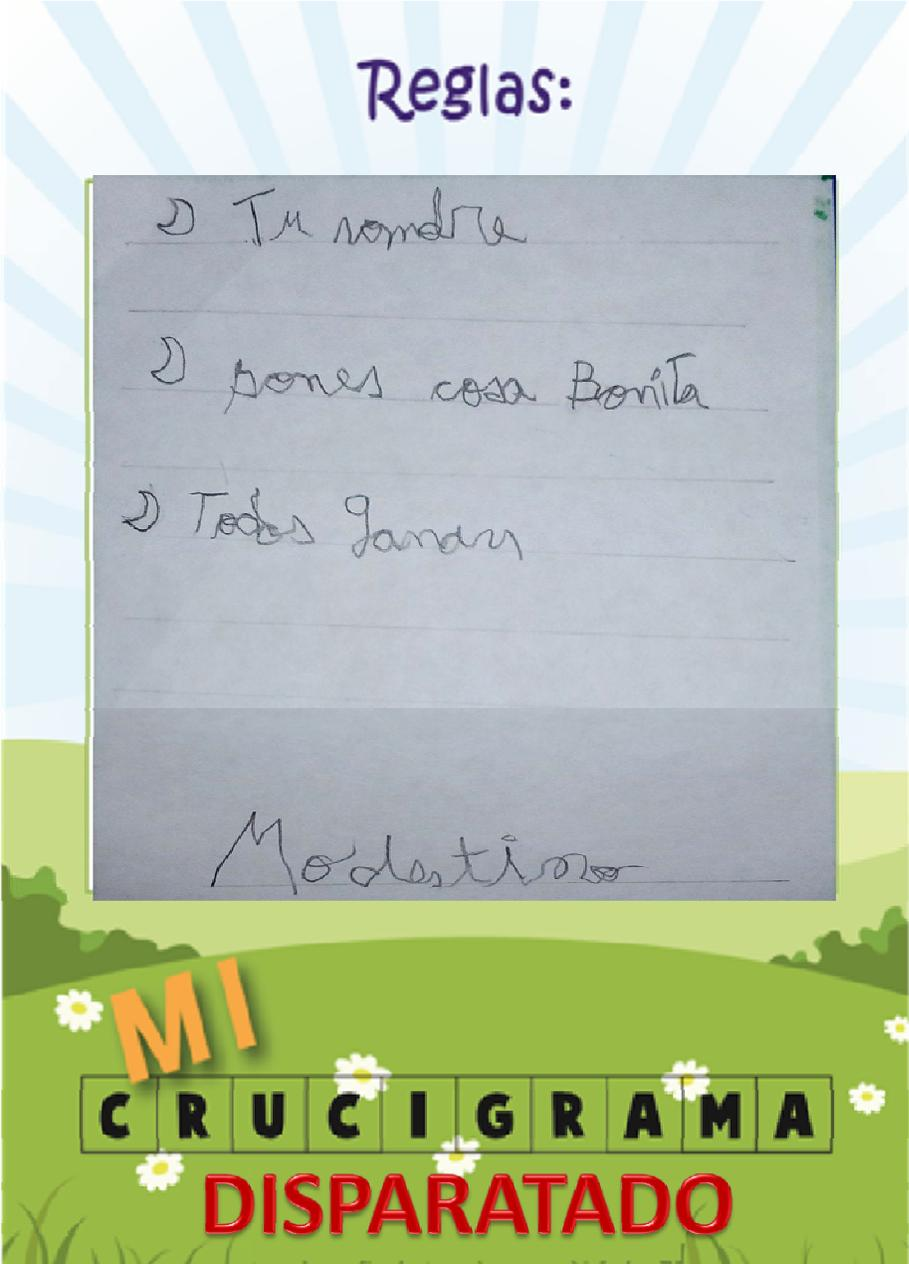 Reglas:
1) Tu nombre
2) pones cosa Bonita
2) Todos ganan
Modestino
MI
CRUCIGRAMA
DISPARATADO